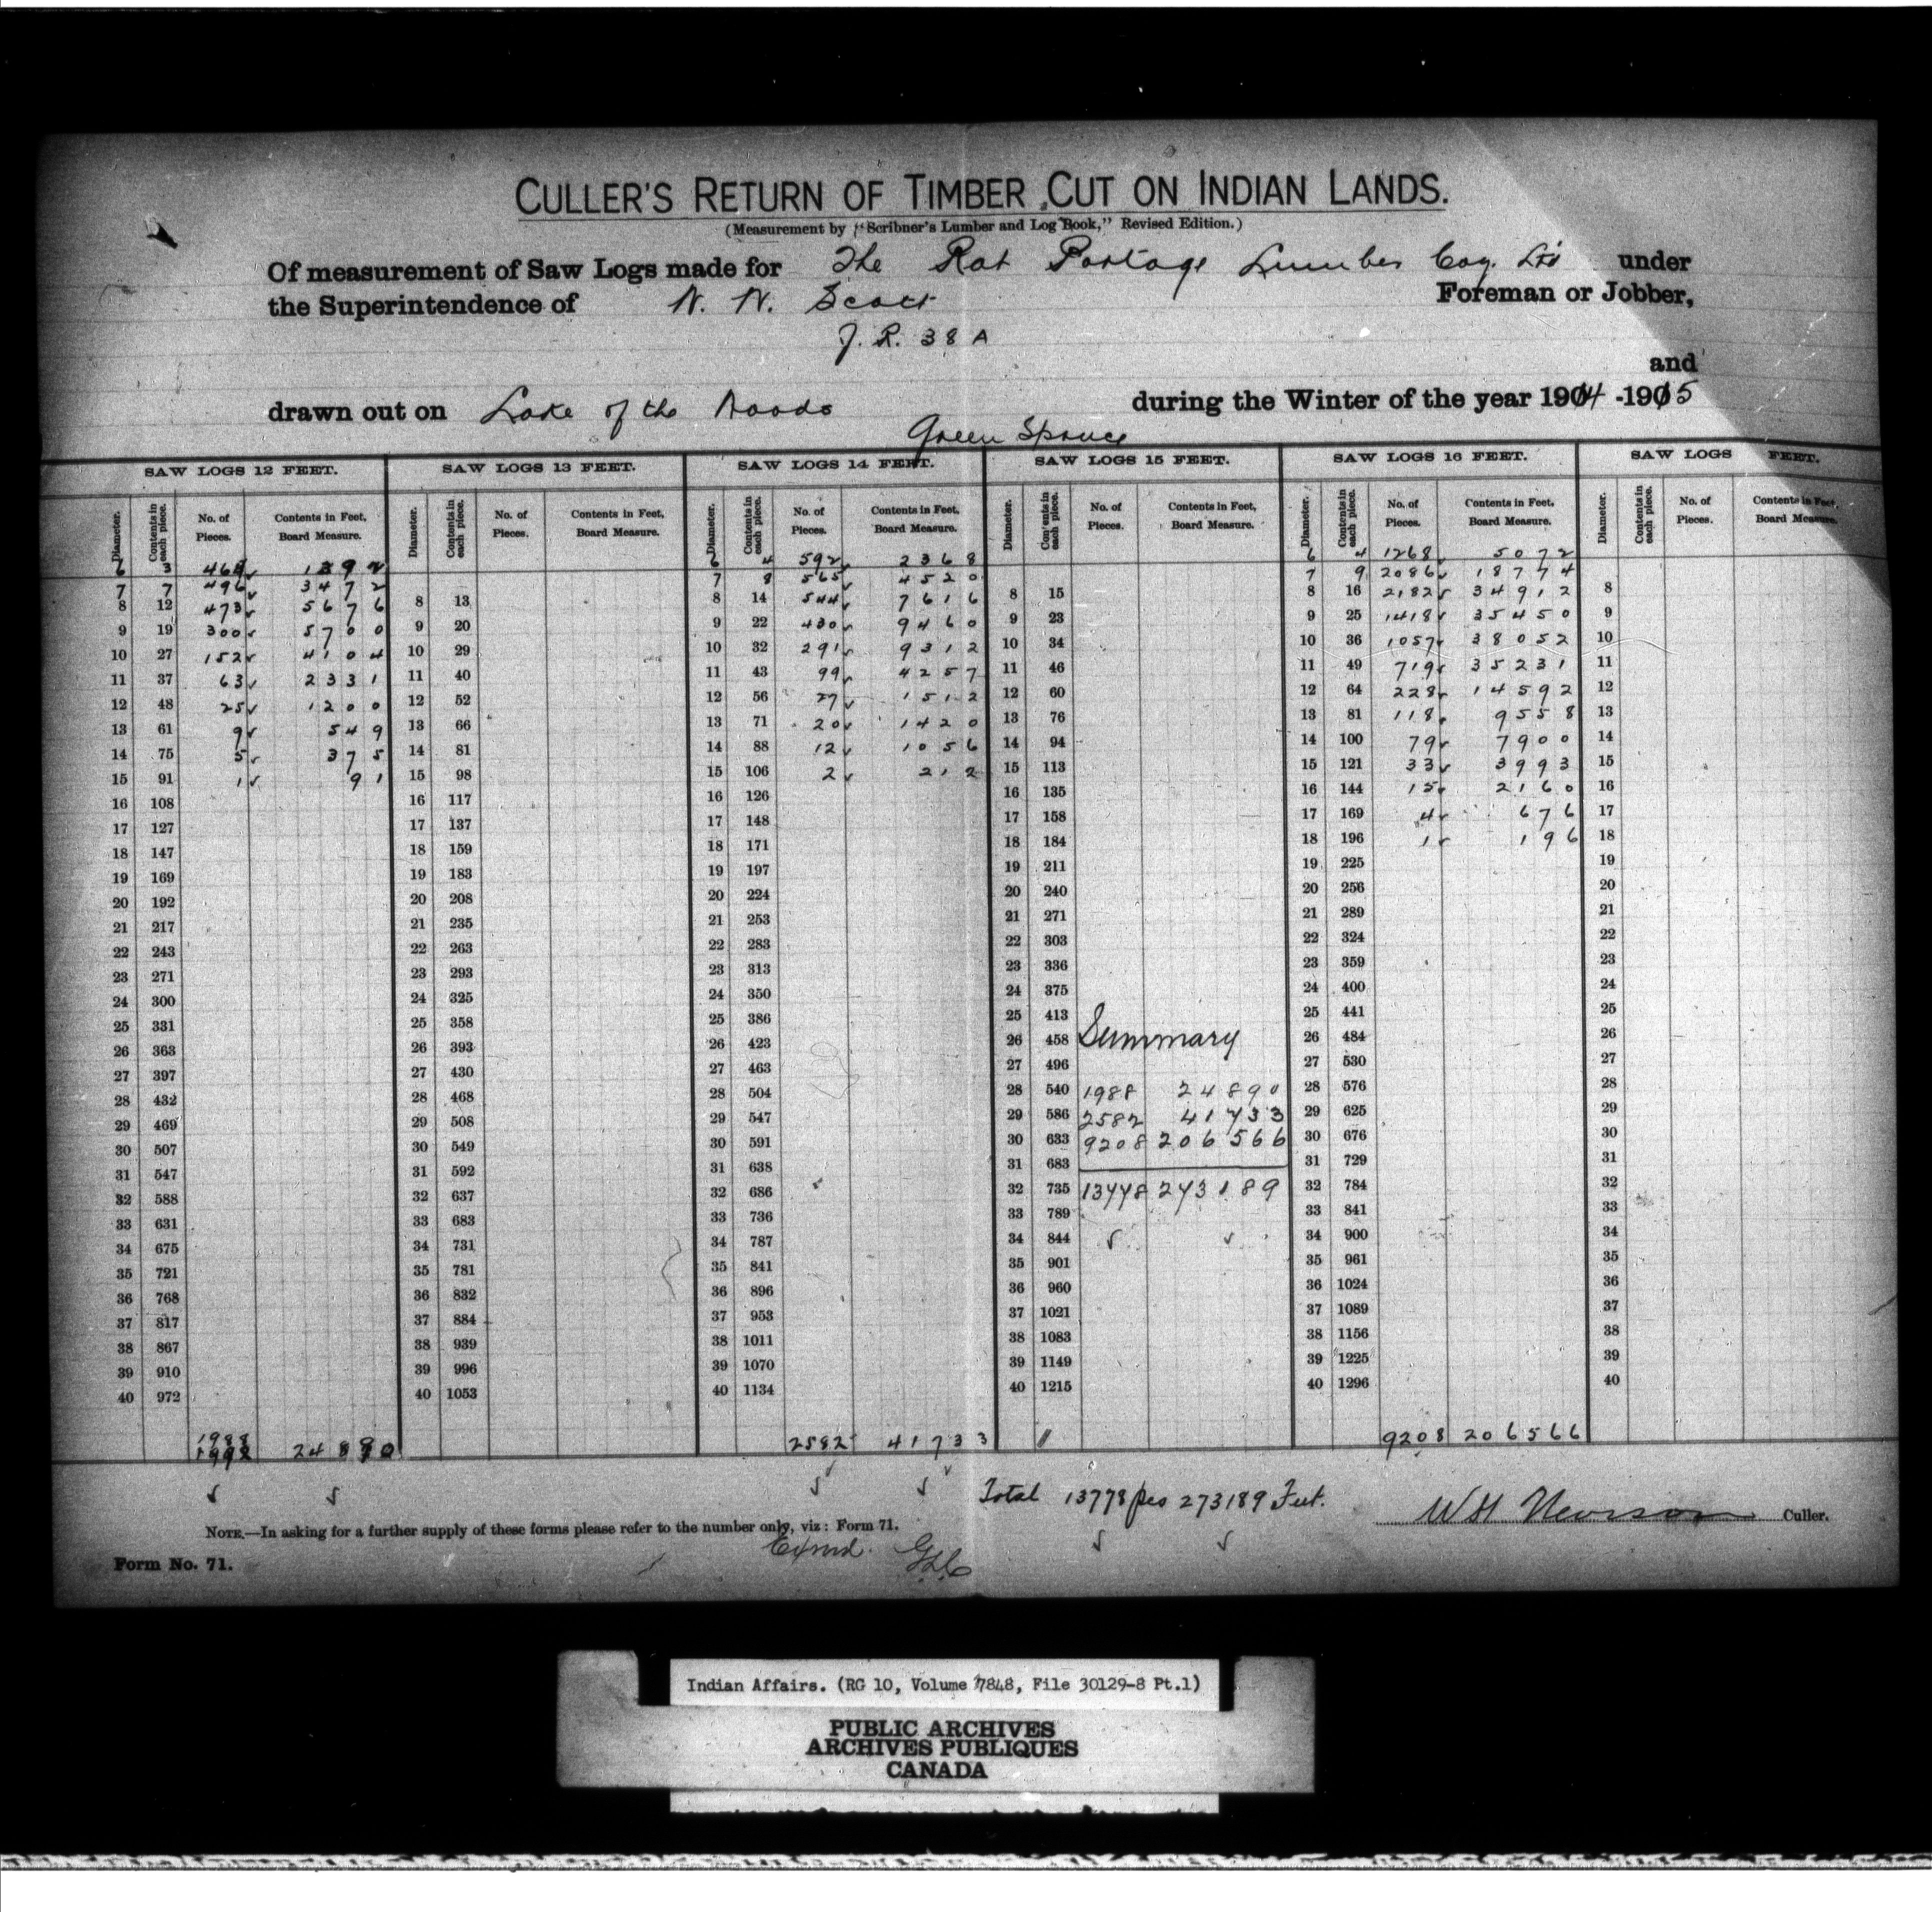 CULLER'S RETURN OF TIMBER CUT ON INDIAN LANDS.
(Measurement by "Scribner's Lumber and Log Book," Revised Edition.)
Of measurement of Saw Logs made for The Rat Portage Lumber Coy. Ltd under
the Superintendence of N. N. Scott Foreman or Jobber,
J. R. 38 A
and
drawn out on Lake of the Woods during the Winter of the year 1904 -1905
Green Spruce
SAW LOGS 12 FEET. SAW LOGS 13 FEET. SAW LOGS 14 FEET. SAW LOGS 15 FEET. SAW LOGS 16 FEET. SAW LOGS FEET.
Diameter. Contents in each piece. No. of Pieces. Contents in Feet, Board Measure. Diameter. Contents in each piece. No. of Pieces. Contents in Feet, Board Measure. Diameter. Contents in each piece. No. of Pieces. Contents in Feet, Board Measure. Diameter. Contents in each piece. No. of Pieces. Contents in Feet, Board Measure. Diameter. Contents in each piece. No. of Pieces. Contents in Feet, Board Measure. Diameter. Contents in each piece. No. of Pieces. Contents in Feet, Board Measure.
6 3 464 1392 6 4 592 2368 6 4 1268 5072
7 7 496 3472 7 8 565 4520 7 9 2086 18774
8 12 473 5676 8 13 8 14 544 7616 8 15 8 16 2182 34912 8
9 19 300 5700 9 20 9 22 430 9460 9 23 9 25 1418 35450 9
10 27 152 4104 10 29 10 32 291 9312 10 34 10 36 1057 38052 10
11 37 63 2331 11 40 11 43 99 4257 11 46 11 49 719 35231 11
12 48 25 1200 12 52 12 56 27 1512 12 60 12 64 228 14592 12
13 61 9 549 13 66 13 71 20 1420 13 76 13 81 118 9558 13
14 75 5 375 14 81 14 88 12 1056 14 94 14 100 79 7900 14
15 91 1 91 15 98 15 106 2 212 15 113 15 121 33 3993 15
16 108 16 117 16 126 16 135 16 144 15 2160 16
17 127 17 137 17 148 17 158 17 169 4 676 17
18 147 18 159 18 171 18 184 18 196 1 196 18
19 169 19 183 19 197 19 211 19 225 19
20 192 20 208 20 224 20 240 20 256 20
21 217 21 235 21 253 21 271 21 289 21
22 243 22 263 22 283 22 303 22 324 22
23 271 23 293 23 313 23 336 23 359 23
24 300 24 325 24 350 24 375 24 400 24
25 331 25 358 25 386 25 413 25 441 25
26 363 26 393 26 423 26 458 Summary 26 484 26
27 397 27 430 27 463 27 496 27 530 27
28 432 28 468 28 504 28 540 1988 24890 28 576 28
29 469 29 508 29 547 29 586 2582 41733 29 625 29
30 507 30 549 30 591 30 633 9208 206566 30 676 30
31 547 31 592 31 638 31 683 31 729 31
32 588 32 637 32 686 32 735 13778 273189 32 784 32
33 631 33 683 33 736 33 789 33 841 33
34 675 34 731 34 787 34 844 34 900 34
35 721 35 781 35 841 35 901 35 961 35
36 768 36 832 36 896 36 960 36 1024 36
37 817 37 884 37 953 37 1021 37 1089 37
38 867 38 939 38 1011 38 1083 38 1156 38
39 910 39 996 39 1070 39 1149 39 1225 39
40 972 40 1053 40 1134 40 1215 40 1296 40
1988
1992 24890 2582 41733 9208 206566
Total 13778 pcs 273189 Feet.
Culler.
NOTE.—In asking for a further supply of these forms please refer to the number only, viz: Form 71.
Exmd.
Form No. 71.
Indian Affairs. (RG 10, Volume 7848, File 30129-8 Pt.1)
PUBLIC ARCHIVES
ARCHIVES PUBLIQUES
CANADA